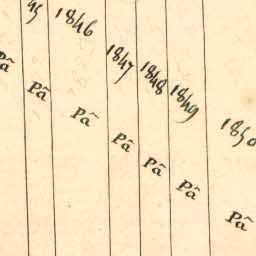 45 1846 1847 1848 1849 1850
Pâ Pâ Pâ Pâ Pâ Pâ Pâ